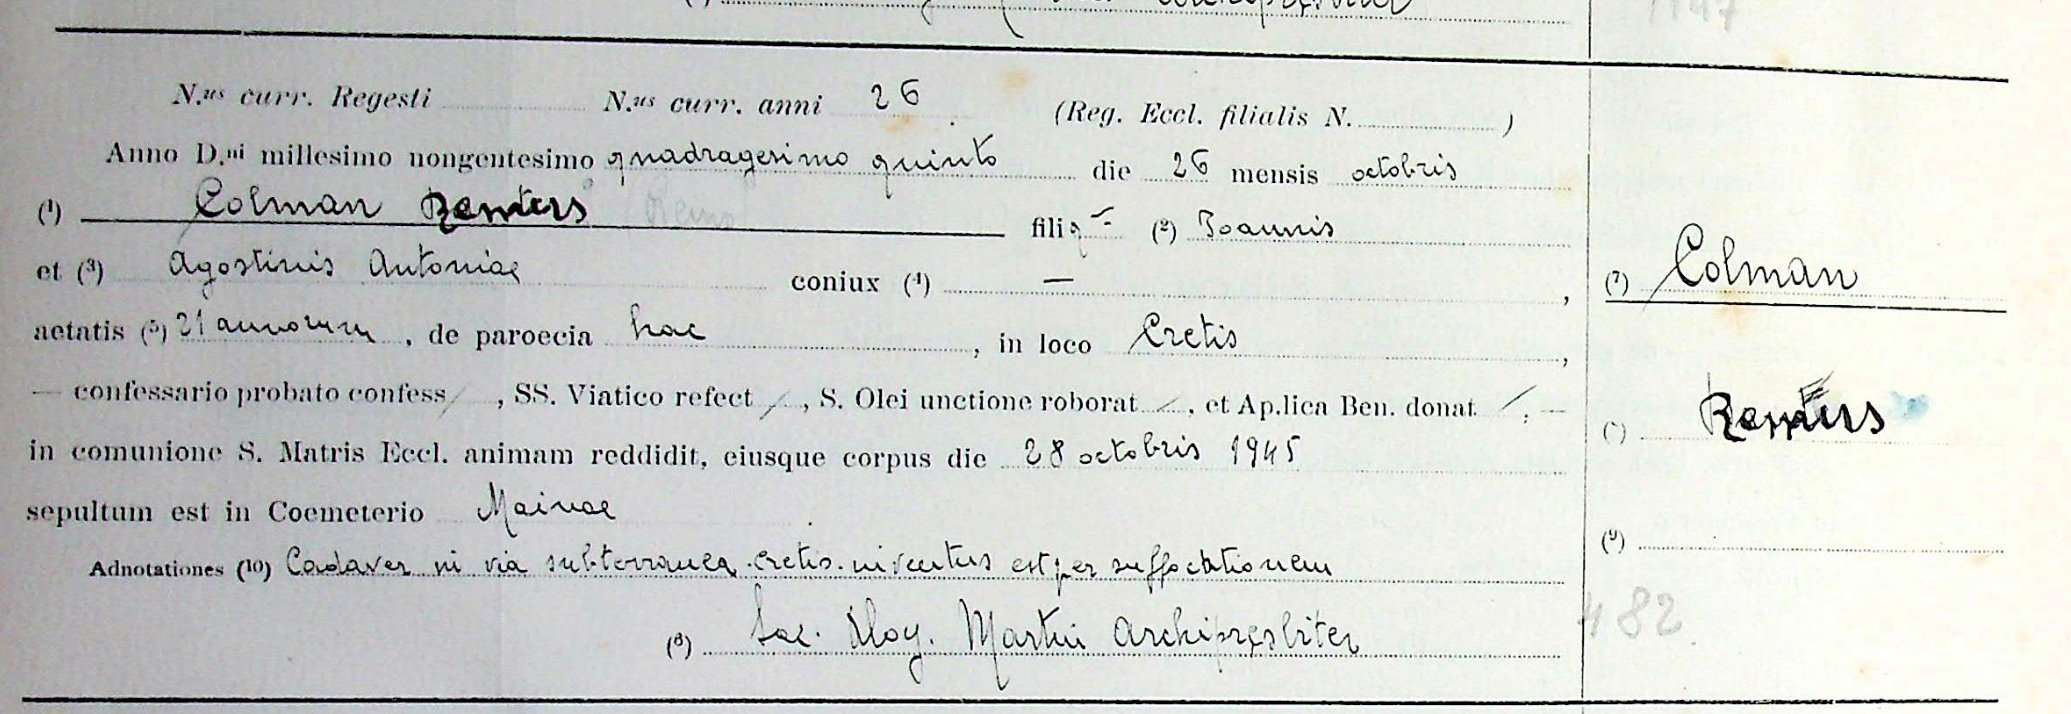 archipresbiter
1147
N.us curr. Regesti N.us curr. anni 26 (Reg. Eccl. filialis N. )
Anno D.ni millesimo nongentesimo quadragesimo quinto die 26 mensis octobris
(1) Colman Remus filius (2) Joannis
et (3) Agostinis Antoniae coniux (4) — ,
aetatis (5) 21 annorum , de paroecia hac , in loco Cretis ,
— confessario probato confess , SS. Viatico refect , S. Olei unctione roborat , et Ap.lica Ben. donat , —
in comunione S. Matris Eccl. animam reddidit, eiusque corpus die 28 octobris 1945
sepultum est in Coemeterio Mainae .
Adnotationes (10) Cadaver in via subterranea Cretis inventus est per suffocationem
(8) Sac. Aloy. Martin Archipresbiter
(7) Colman
(9)
482